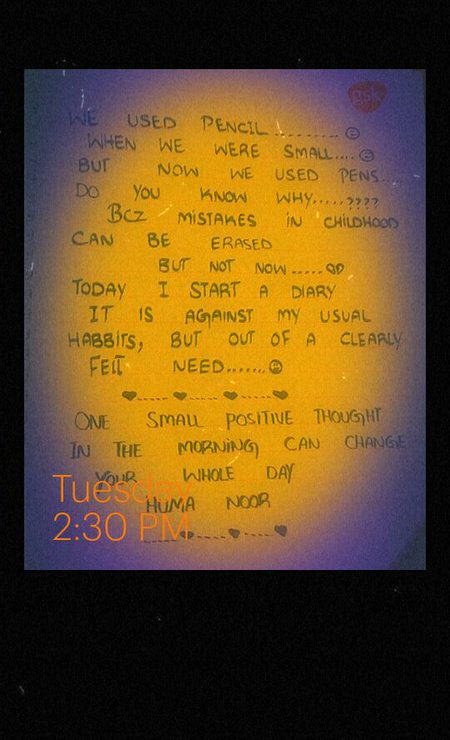 gsk
WE USED PENCIL.........☺
WHEN WE WERE SMALL....☺
BUT NOW WE USED PENS...
DO YOU KNOW WHY.....????
Bcz MISTAKES IN CHILDHOOD
CAN BE ERASED
BUT NOT NOW.....
TODAY I START A DIARY
IT IS AGAINST MY USUAL
HABBITS, BUT OUT OF A CLEARLY
FELT NEED.......☺
♥.....♥.....♥.....♥
ONE SMALL POSITIVE THOUGHT
IN THE MORNING CAN CHANGE
YOUR WHOLE DAY
HUMA NOOR
Tuesday
2:30 PM